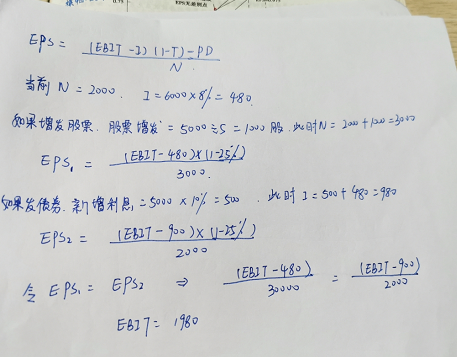 EPS无差别点
EPS = (EBIT-I)(1-T)-PD / N
当前 N=2000. I=6000×8%=480.
如果增发股票. 股票增发=5000÷5=1000股. 此时N=2000+1000=3000
EPS₁ = (EBIT-480)×(1-25%) / 3000.
如果发债券. 新增利息=5000×10%=500. 此时 I=500+480=980
EPS₂ = (EBIT-900)×(1-25%) / 2000
令 EPS₁ = EPS₂ ⇒ (EBIT-480) / 30000 = (EBIT-900) / 2000
EBIT = 1980